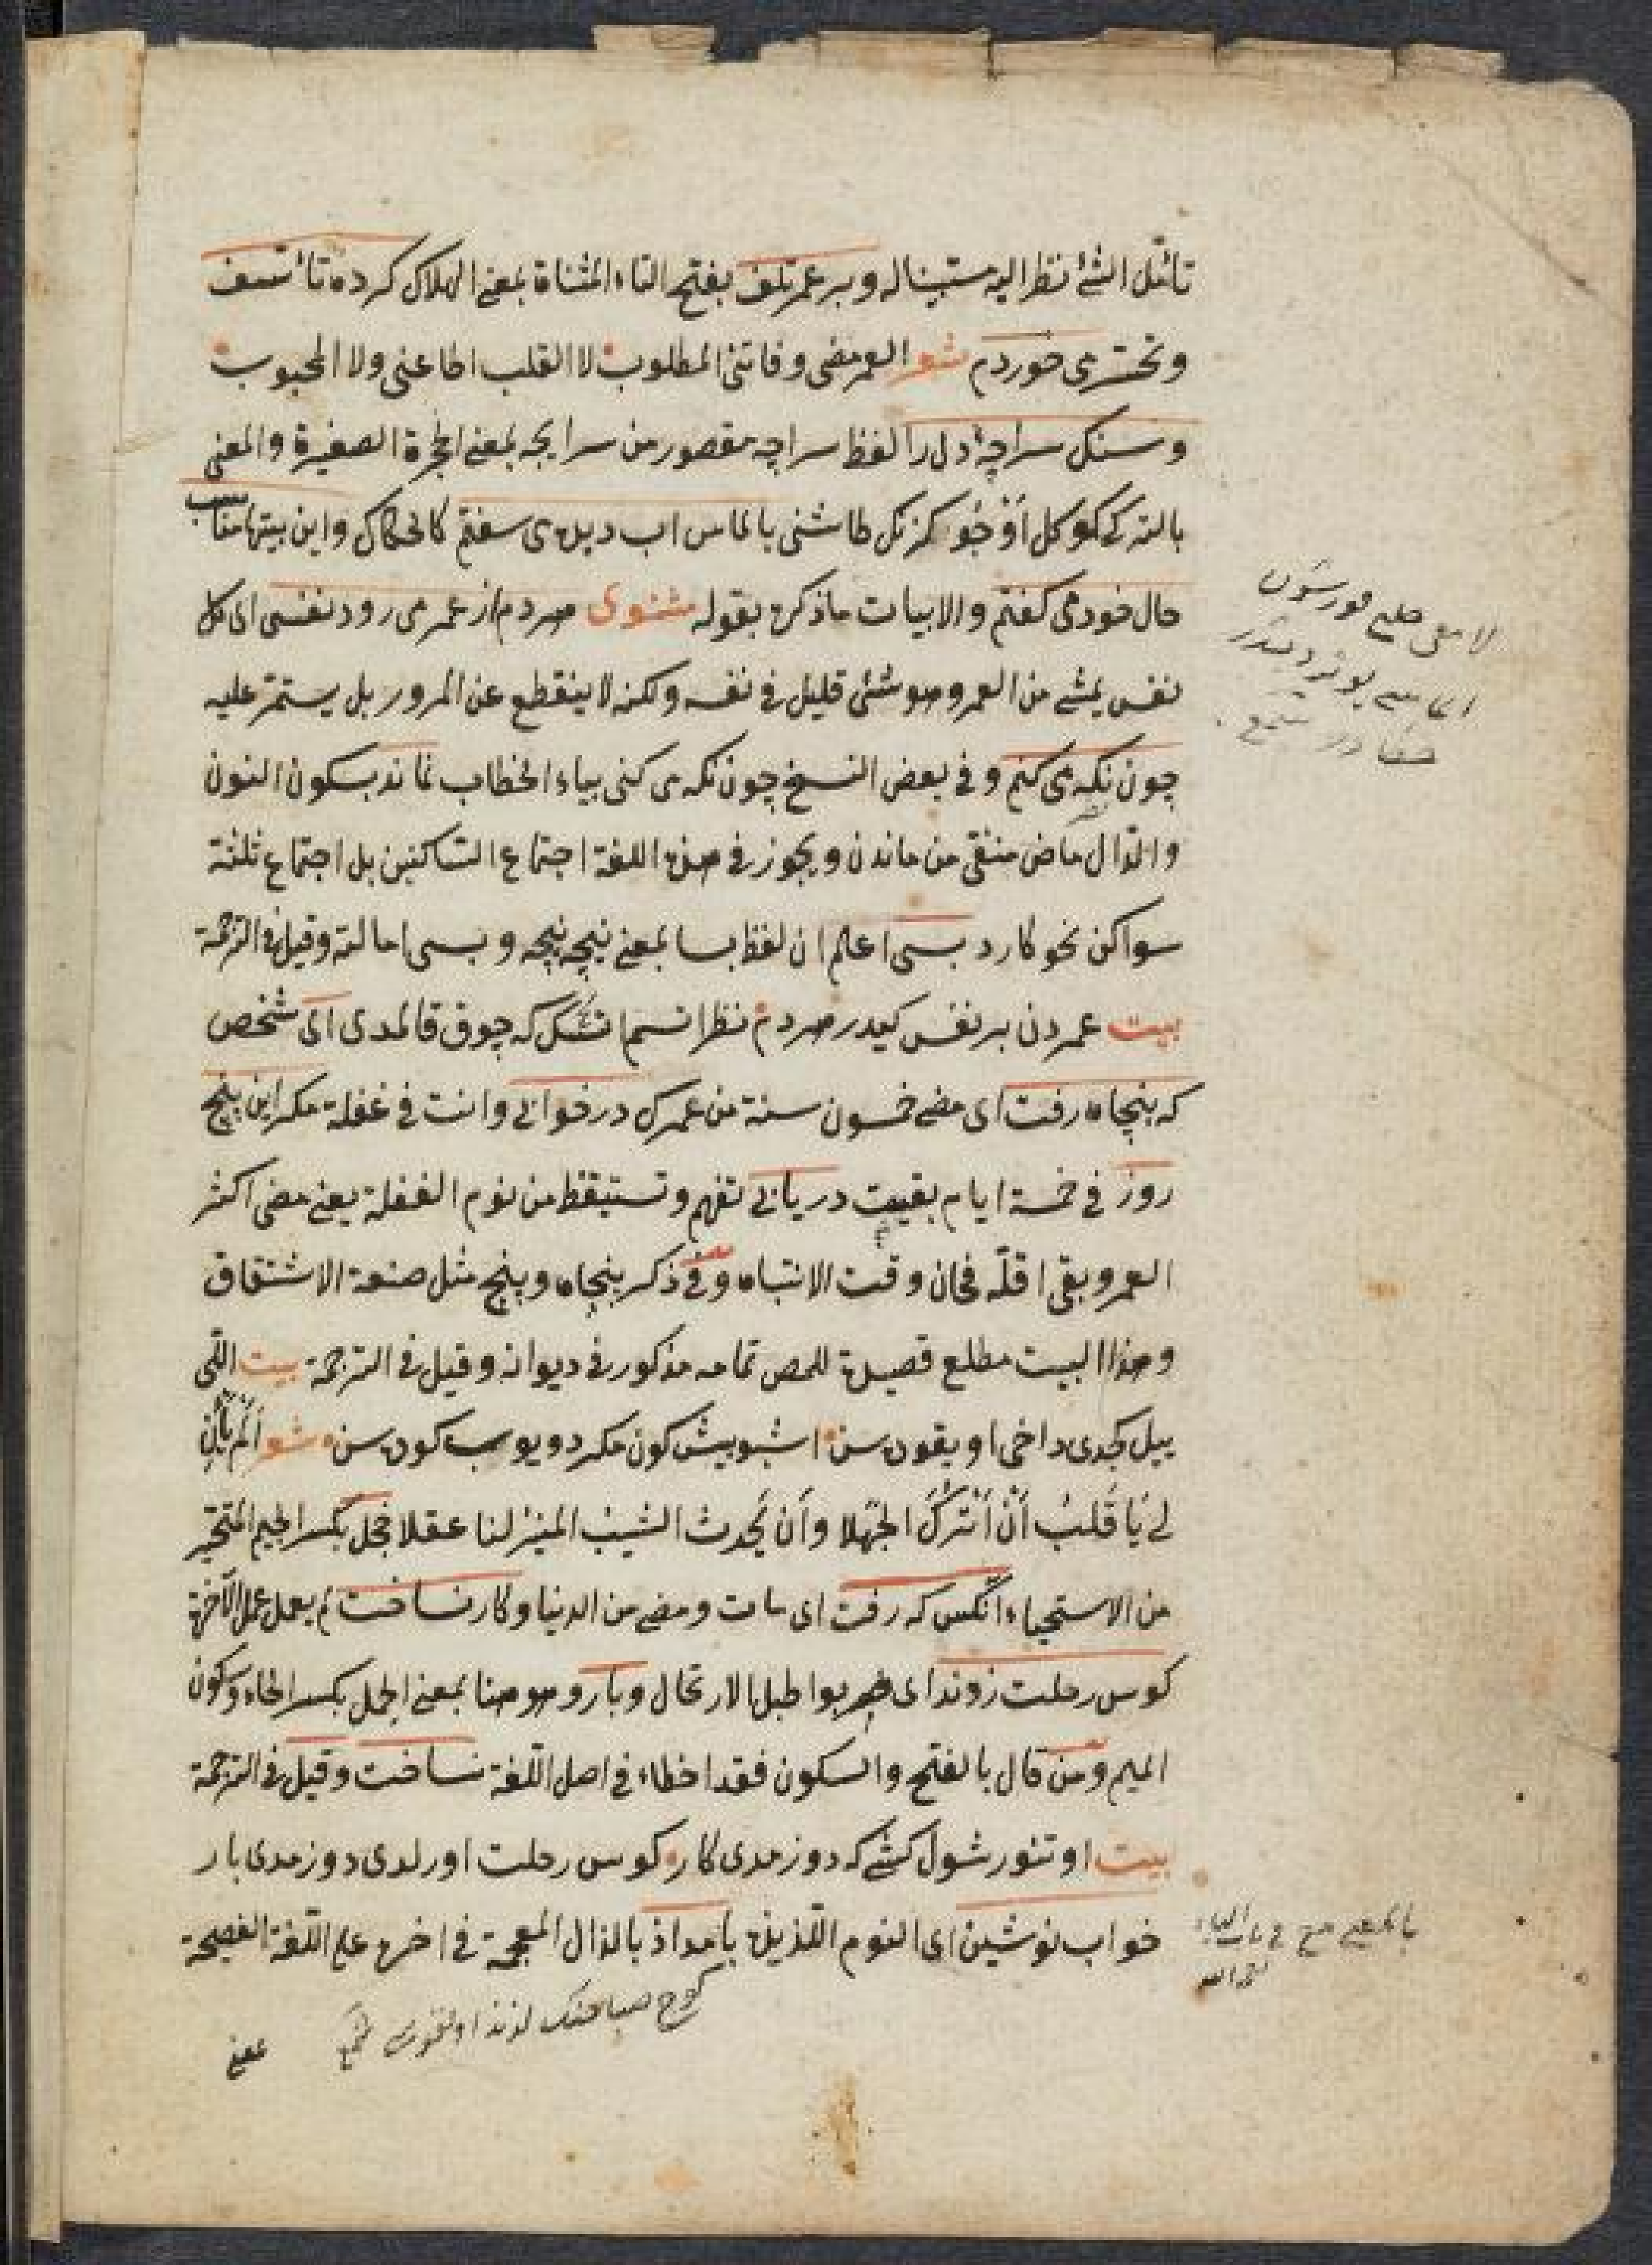 تأمّل الشئ نظر اليه مستبينا له وبر عمر تلف بفتح التاء المثناة بمعنى الهلاك كرده تأسّف
وتحسّر می خوردم شعر العمر مضی وفاتنی المطلوب لا القلب اطاعنی ولا المحبوب
وسنك سراچۀ دل را لفظ سراچه مقصور من سرایچه بمعنى الحجرة الصغيرة والمعنى
بالتركی كوكل اوجو كزنك طاشنی بالماس اب ديده می سفتم كالحكاك واين بيتها مناسب
حال خود می كفتم والابيات ماذكره بقوله مثنوی هر دم از عمر می رود نفسی ای كل
نفس يمشی من العمر وهو شئ قليل فی نفسه ولكنه لا ينقطع عن المرور بل يستمر عليه
چون نكه می كنم وفی بعض النسخ چون نكه می كنی بياء الخطاب نماند بسكون النون
والدّال ماض منفی من ماندن ويجوز فی هذه اللغة اجتماع السّاكنين بل اجتماع ثلثة
سواكن نحو كارد بسی اعلم ان لفظ بسا بمعنى نيچه نيچه وبسی امالته وقيل فی الترجمة
بيت عمردن بر نفس كيدر هر دم نظر اتسم انك كه چوق قالمدی ای شخص
كه پنجاه رفت ای مضی خمسون سنة من عمرك در خوابی وانت فی غفلة مكر اين پنج
روز فی خمسة ايام بقيت دريابی تفهم وتستيقظ من نوم الغفلة يعنی مضی اكثر
العمر وبقی اقلّه فحان وقت الانتباه وفی ذكر پنجاه وپنج مثل صنعة الاشتقاق
وهذا البيت مطلع قصيدة للمص تمامه مذكور فی ديوانه وقيل فی الترجمة بيت اللّی
ييل كجدی داخی اويقوده سن اشبو بيش كون مكر دويوب كوره سن شعر ألم يأن
لی يا قلب أن أترك الجهلا وأن يحدث الشيب المنير لنا عقلا خجل بكسر الجيم المتحيّر
من الاستحياء آنكس كه رفت ای مات ومضی من الدنيا وكار نساخت لم يعمل عمل الآخرة
كوس رحلت زوند ای ضربوا طبل الارتحال وبار وهو هنا بمعنى الحمل بكسر الحاء وسكون
الميم ومن قال بالفتح والسكون فقد اخطاء فی اصل اللّغة نساخت وقيل فی الترجمة
بيت اوتنور شول كشی كه دوزمدی كار وكوس رحلت اورلدی دوزمدی بار
خواب نوشين ای النوم اللذيذة بامداذ بالذال المعجمة فی اخره علی اللّغة الفصيحة
كوچ صباحنك لذيذ اويقوسی